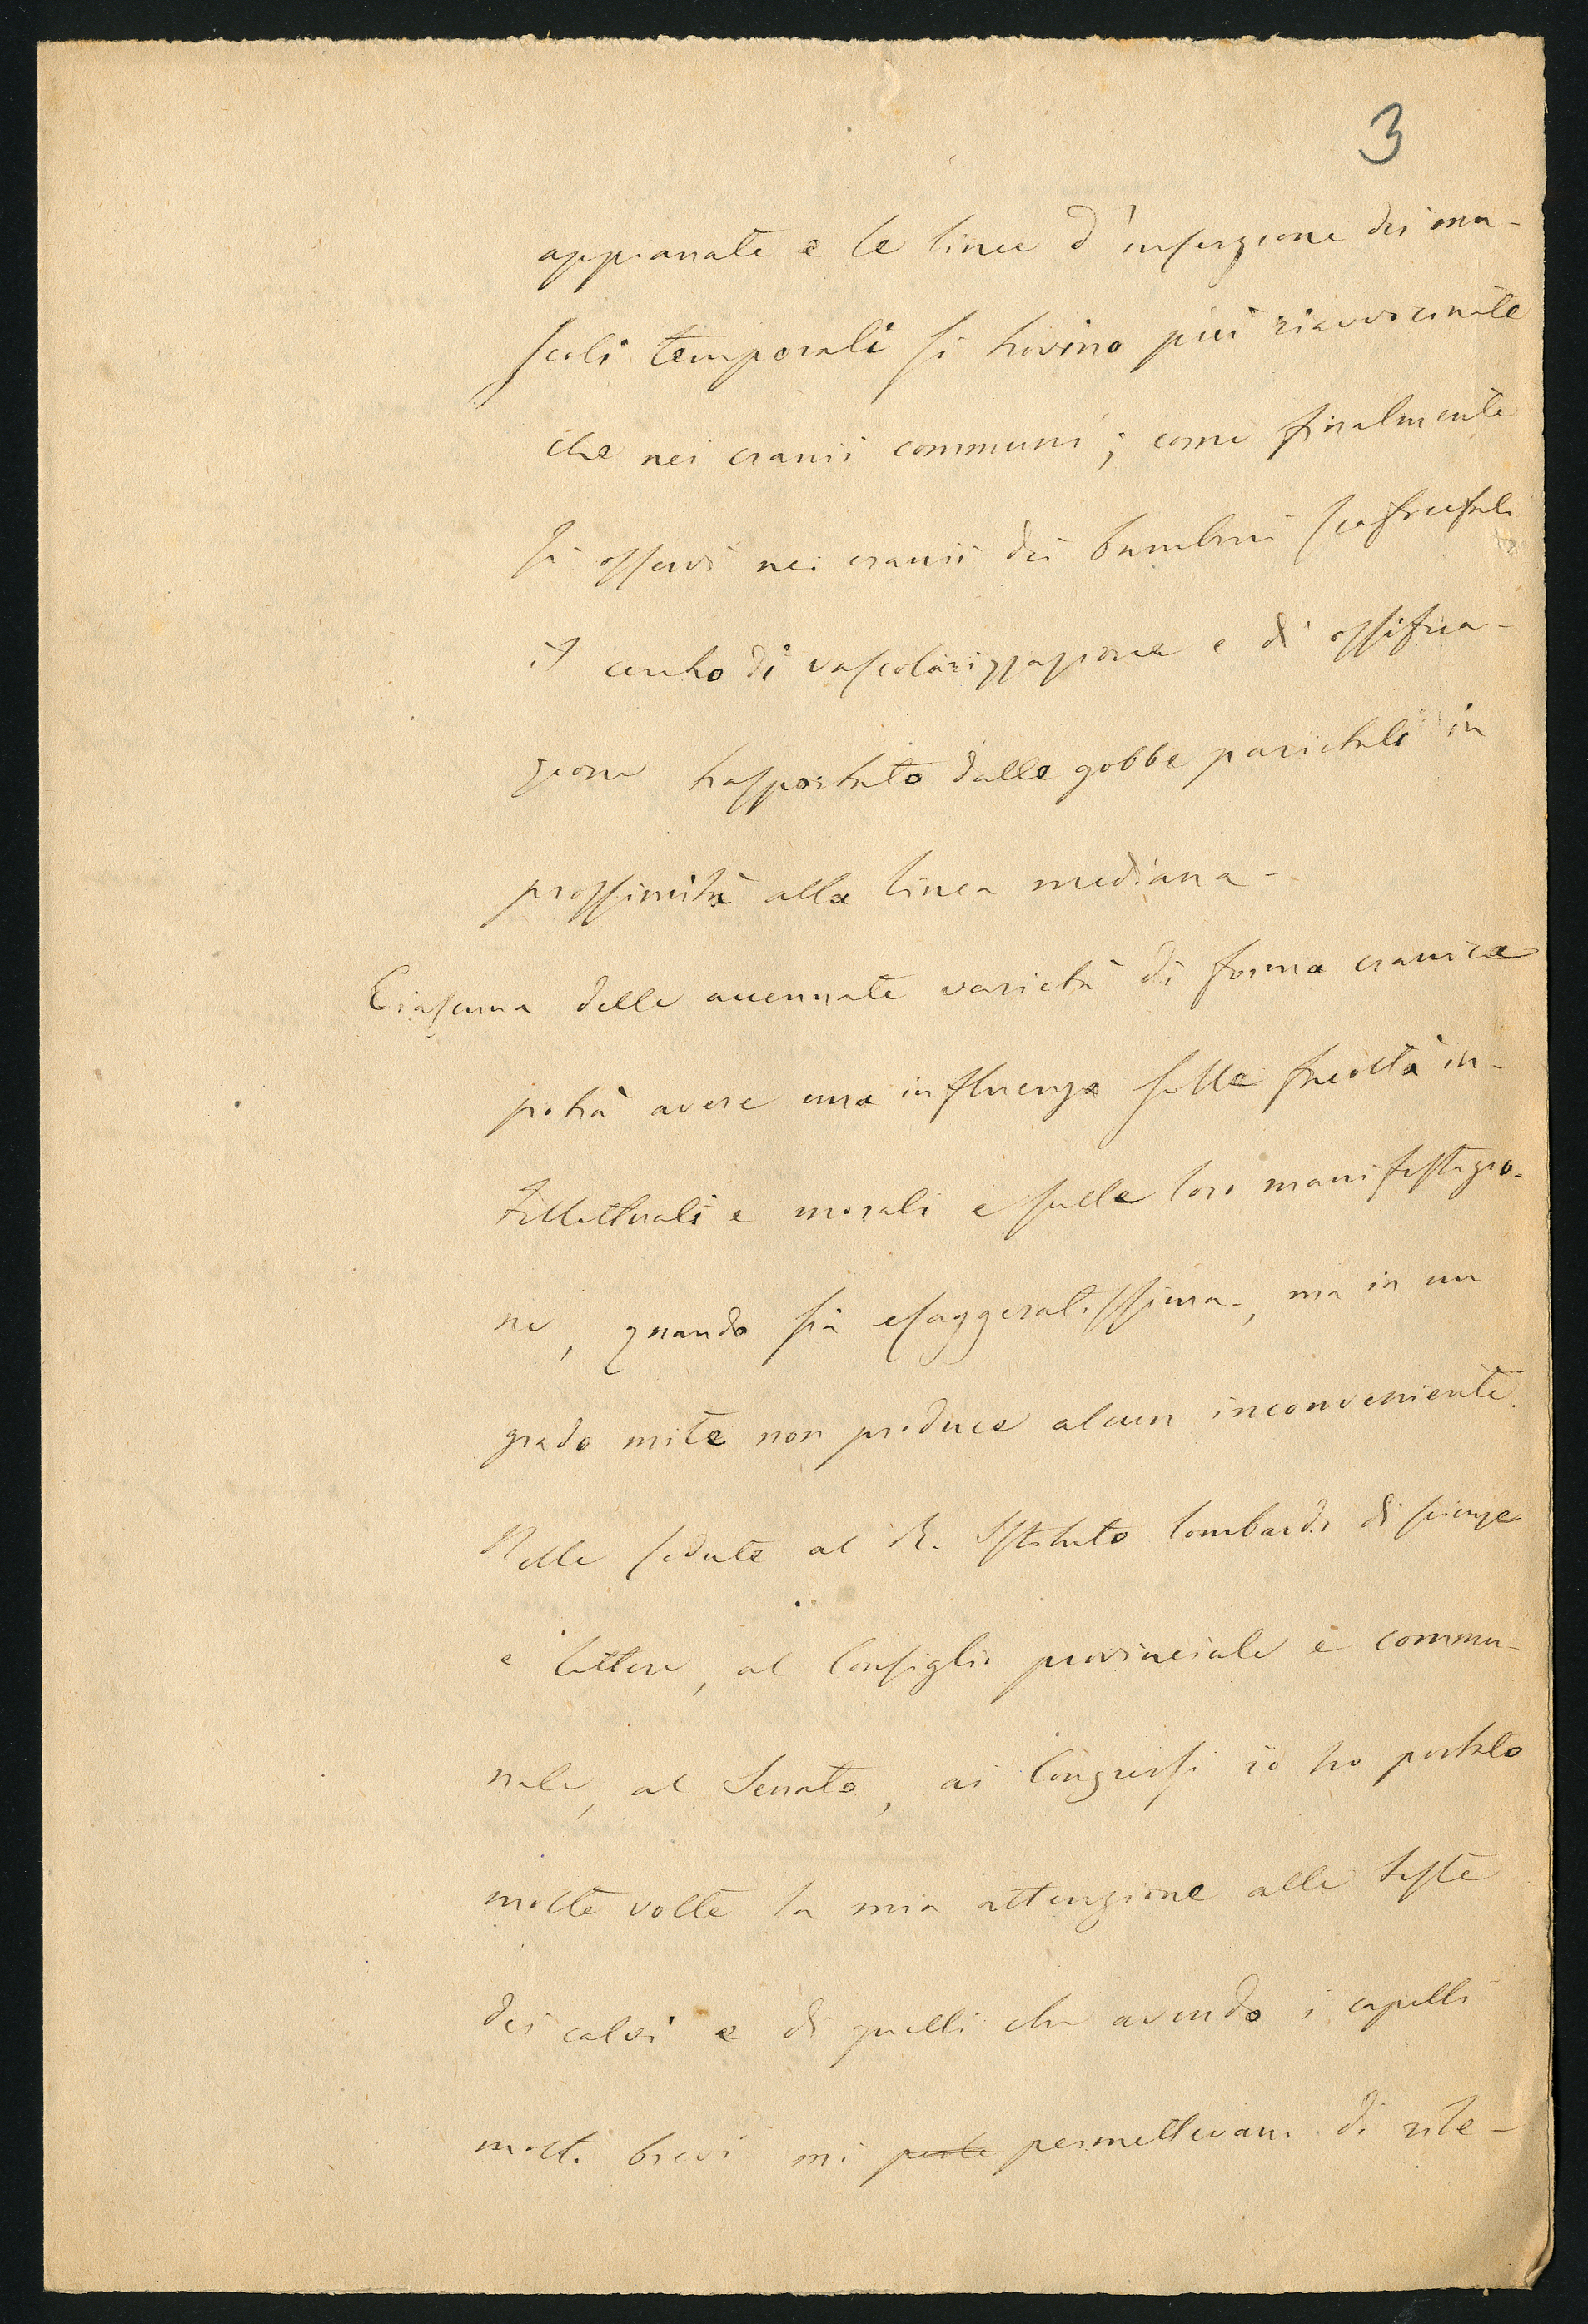 3
appianate e le linee d'inserzione dei mu-
scoli temporali si trovino più riavvicinate
che nei cranii communi; come finalmente
si osservi nei cranii dei bambini scafocefali
il centro di vascolarizzazione e di ossifica-
zione trasportato dalle gobbe parietali in
prossimità alla linea mediana-
Ciascuna delle accennate varietà di forma cranica
potrà avere una influenza sulle facoltà in-
tellettuali e morali e sulle loro manifestazio-
ni, quando sia esaggeratissima, ma in un
grado mite non produce alcun inconveniente.
Nelle sedute al R. Istituto lombardo di scienze
e lettere, al Consiglio provinciale e commu-
nale, al Senato, ai Congressi io ho portato
molte volte la mia attenzione alle teste
dei calvi e di quelli che avendo i capelli
molto brevi mi permettevano di rile-